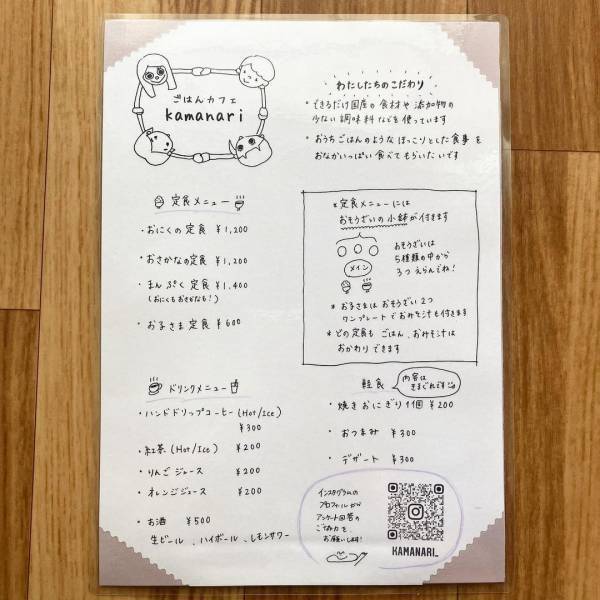 ごはんカフェ
kamanari
わたしたちのこだわり
・できるだけ国産の食材や添加物の
少ない調味料などを使っています
・おうちごはんのようなほっこりとした食事を
おなかいっぱい食べてもらいたいです
定食メニュー
・おにくの定食 ¥1,200
・おさかなの定食 ¥1,200
・まんぷく定食 ¥1,400
(おにくもおさかなも!)
・お子さま定食 ¥600
*定食メニューには
おそうざいの小鉢が付きます
おそうざいは
5種類の中から
3つえらんでね!
メイン
*お子さまはおそうざい2つ
ワンプレートでおみそ汁も付きます
*どの定食もごはん、おみそ汁は
おかわりできます
ドリンクメニュー
・ハンドドリップコーヒー(Hot/Ice)
¥300
・紅茶(Hot/Ice) ¥200
・りんごジュース ¥200
・オレンジジュース ¥200
・お酒 ¥500
生ビール、ハイボール、レモンサワー
軽食
内容は
きまぐれです
・焼きおにぎり1個 ¥200
・おつまみ ¥300
・デザート ¥300
インスタグラムの
プロフィールから
アンケート回答の
ご協力を
お願いします!
KAMANARI_